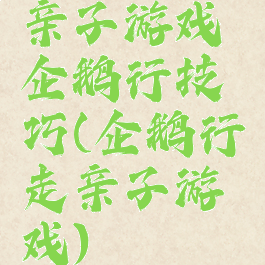 亲子游戏
企鹅行技
巧(企鹅行
走亲子游
戏)